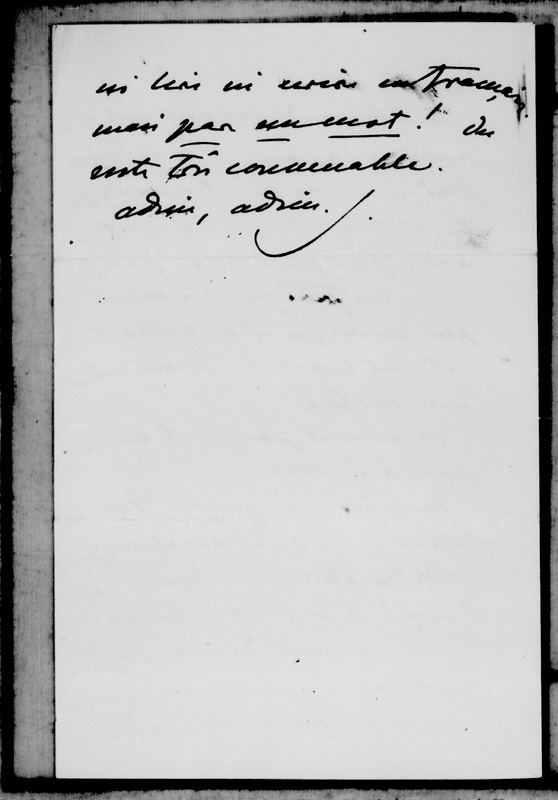 ni lire ni écrire en français
mais pas un mot! Du
reste très convenable.
adieu, adieu.